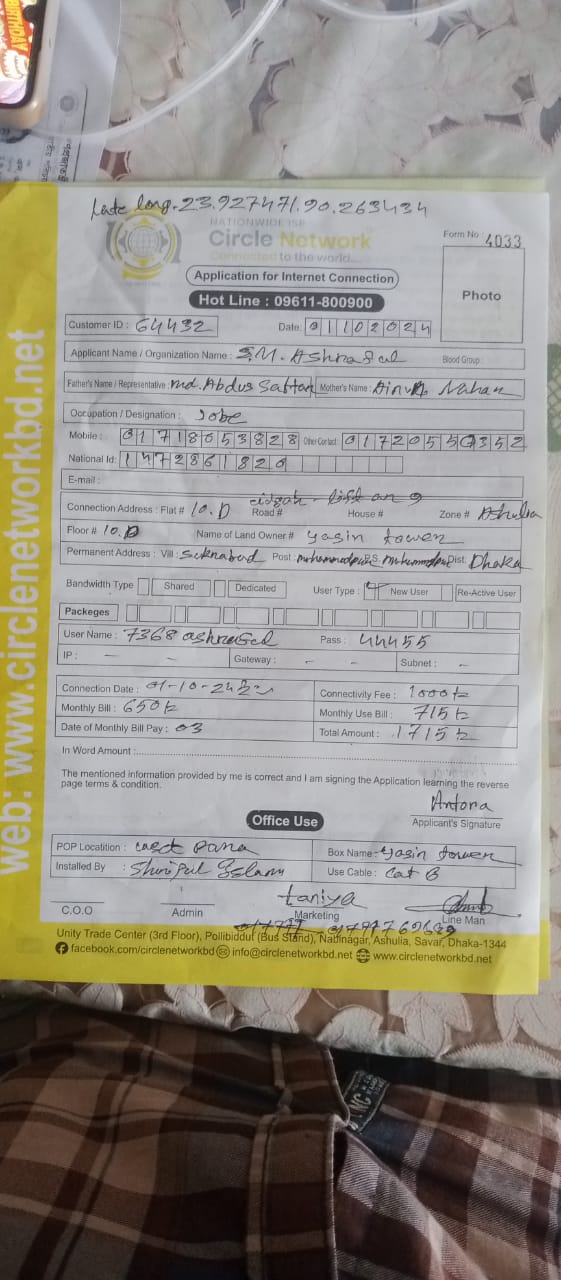 Late long. 23.927471.90.263434
NATIONWIDE ISP
Circle Network
Connected to the world...
Form No : 4033
Application for Internet Connection
Hot Line : 09611-800900
Photo
Customer ID : 64432 Date: 01102024
Applicant Name / Organization Name : S.M. Ashraful Blood Group :
Father's Name / Representative : md. Abdus Sattar Mother's Name : Nahar
Occupation / Designation : Jobe
Mobile : 01718053828 Other Contact: 01720550352
National Id: 1472861820
E-mail :
Connection Address : Flat # 10.D Road # House # Zone # Ashulia
Floor # 10.D Name of Land Owner # yasin tower
Permanent Address : Vill : Post : P.S. Dist: Dhaka
Bandwidth Type Shared Dedicated User Type : New User Re-Active User
Packeges
User Name : Pass : 44455
IP : - - Gateway : - - Subnet : -
Connection Date : 01-10-24 Connectivity Fee : 1000 tk
Monthly Bill : 650 tk Monthly Use Bill : 715 tk
Date of Monthly Bill Pay : 03 Total Amount : 1715 tk
In Word Amount :
The mentioned information provided by me is correct and I am signing the Application learning the reverse
page terms & condition.
Antora
Applicant's Signature
Office Use
POP Locatition : Box Name : yasin tower
Installed By : Use Cable : Cat 6
taniya
C.O.O Admin Marketing Line Man
Unity Trade Center (3rd Floor), Pollibiddut (Bus Stand), Nabinagar, Ashulia, Savar, Dhaka-1344
facebook.com/circlenetworkbd info@circlenetworkbd.net www.circlenetworkbd.net
web: www.circlenetworkbd.net
BIRTHDAY